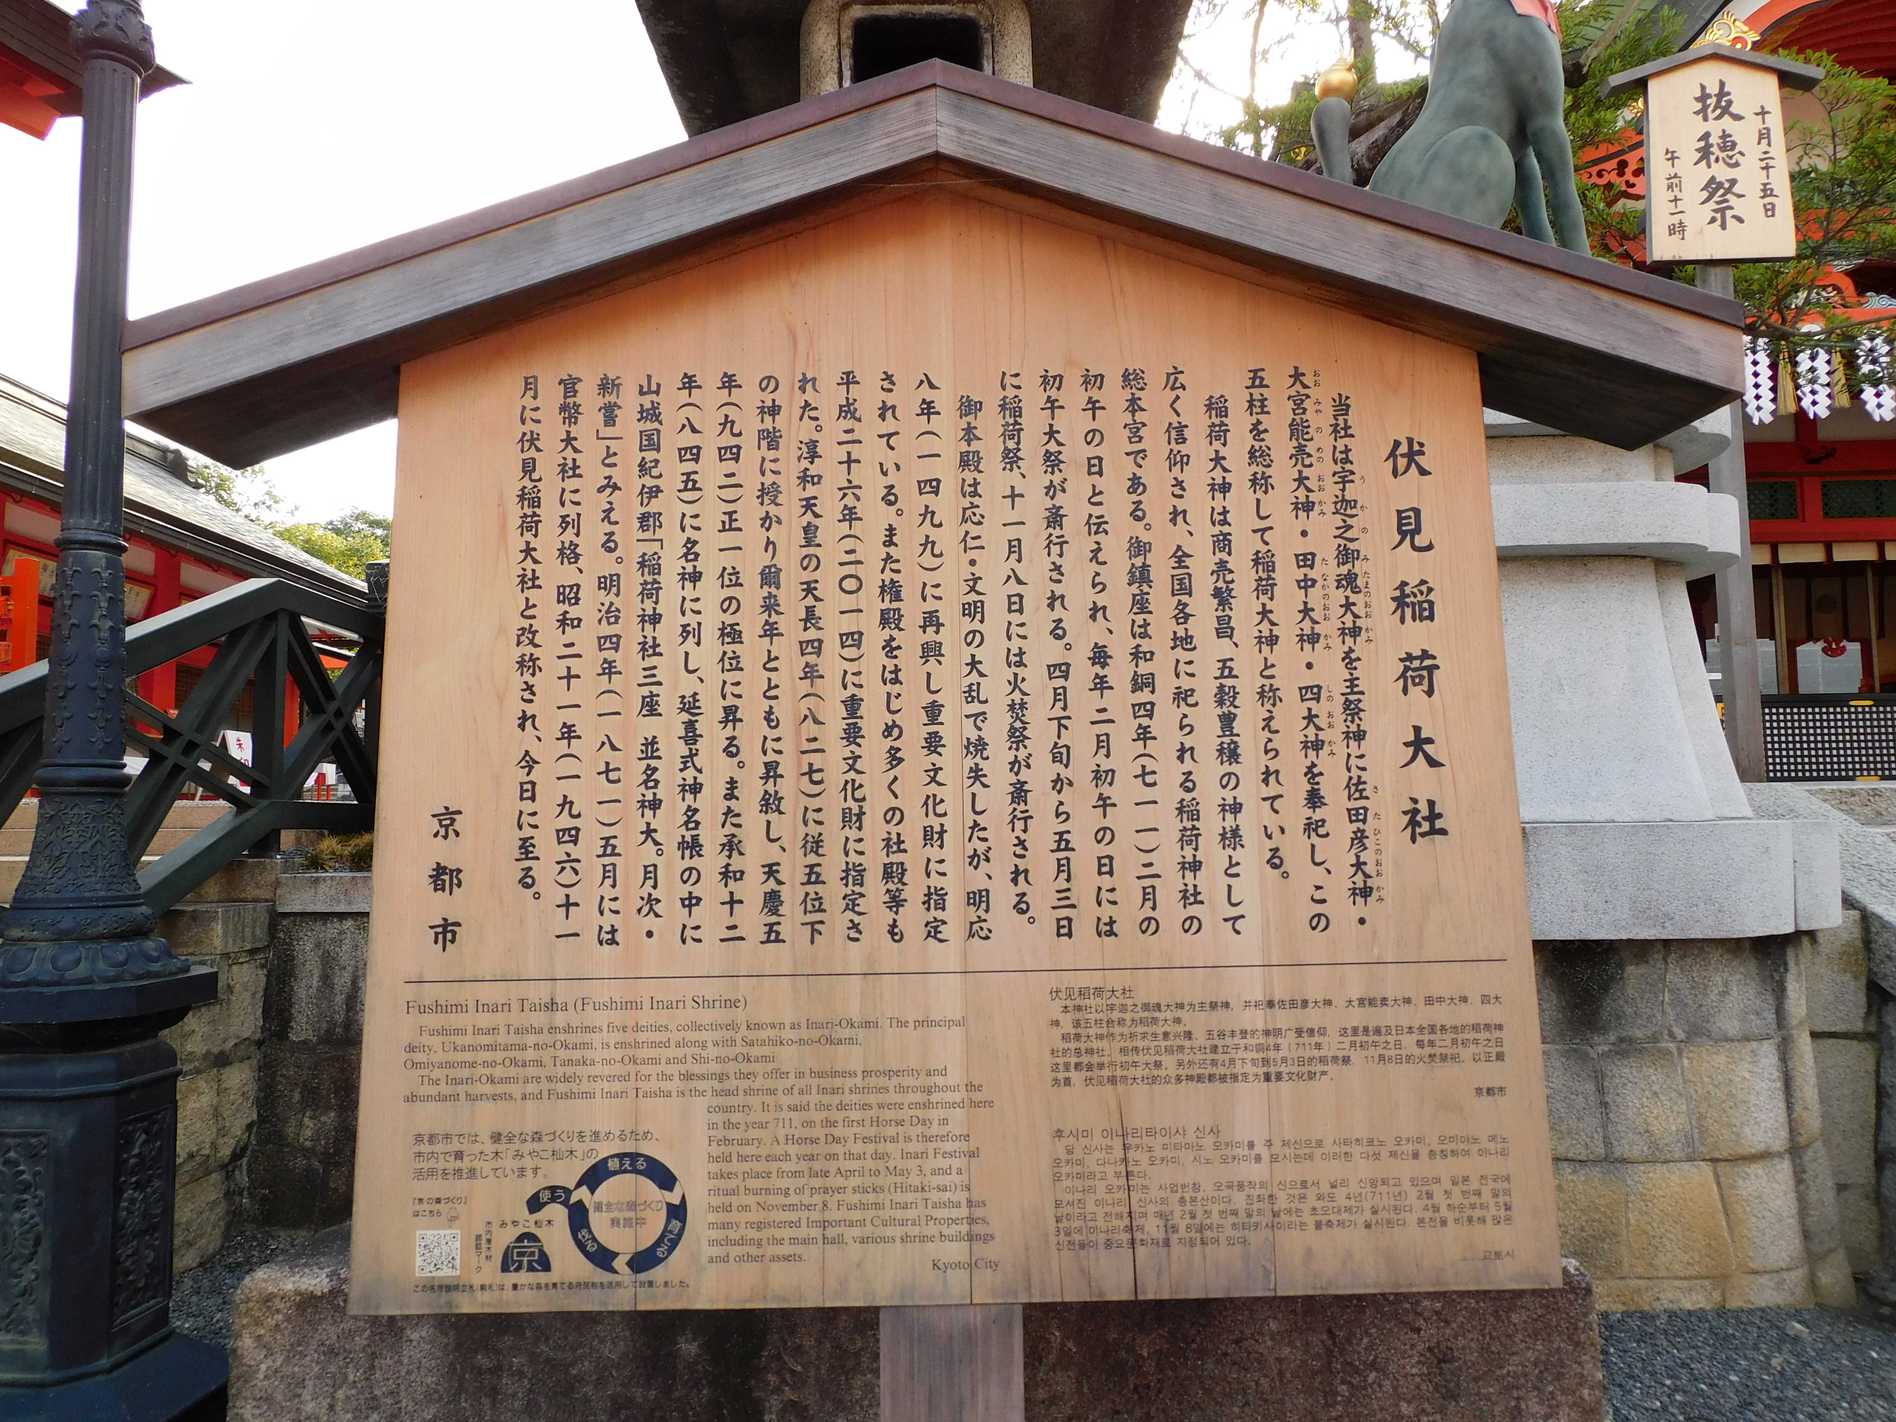 伏見稲荷大社
当社は宇迦之御魂大神を主祭神に佐田彦大神・
大宮能売大神・田中大神・四大神を奉祀し、この
五柱を総称して稲荷大神と称えられている。
稲荷大神は商売繁昌、五穀豊穣の神様として
広く信仰され、全国各地に祀られる稲荷神社の
総本宮である。御鎮座は和銅四年(七一一)二月の
初午の日と伝えられ、毎年二月初午の日には
初午大祭が斎行される。四月下旬から五月三日
に稲荷祭、十一月八日には火焚祭が斎行される。
御本殿は応仁・文明の大乱で焼失したが、明応
八年(一四九九)に再興し重要文化財に指定
されている。また権殿をはじめ多くの社殿等も
平成二十六年(二〇一四)に重要文化財に指定さ
れた。淳和天皇の天長四年(八二七)に従五位下
の神階に授かり爾来年とともに昇敘し、天慶五
年(九四二)正一位の極位に昇る。また承和十二
年(八四五)に名神に列し、延喜式神名帳の中に
山城国紀伊郡「稲荷神社三座 並名神大。月次・
新嘗」とみえる。明治四年(一八七一)五月には
官幣大社に列格、昭和二十一年(一九四六)十一
月に伏見稲荷大社と改称され、今日に至る。
京都市
Fushimi Inari Taisha (Fushimi Inari Shrine)
Fushimi Inari Taisha enshrines five deities, collectively known as Inari-Okami. The principal
deity, Ukanomitama-no-Okami, is enshrined along with Satahiko-no-Okami,
Omiyanome-no-Okami, Tanaka-no-Okami and Shi-no-Okami
The Inari-Okami are widely revered for the blessings they offer in business prosperity and
abundant harvests, and Fushimi Inari Taisha is the head shrine of all Inari shrines throughout the
country. It is said the deities were enshrined here
in the year 711, on the first Horse Day in
February. A Horse Day Festival is therefore
held here each year on that day. Inari Festival
takes place from late April to May 3, and a
ritual burning of prayer sticks (Hitaki-sai) is
held on November 8. Fushimi Inari Taisha has
many registered Important Cultural Properties,
including the main hall, various shrine buildings
and other assets.
Kyoto City
京都市では、健全な森づくりを進めるため、
市内で育った木「みやこ杣木」の
活用を推進しています。
「京の森づくり」
はこちら
市内産木材
認証マーク
みやこ杣木
京
植える
育てる
伐る
使う
健全な森づくり
実施中
伏见稻荷大社
本神社以宇迦之御魂大神为主祭神，并祀奉佐田彦大神、大宫能卖大神、田中大神、四大
神，该五柱合称为稻荷大神。
稻荷大神作为祈求生意兴隆、五谷丰登的神明广受信仰，这里是遍及日本全国各地的稻荷神
社的总神社。相传伏见稻荷大社建立于和铜4年（711年）二月初午之日，每年二月初午之日
这里都会举行初午大祭。另外还有4月下旬到5月3日的稻荷祭，11月8日的火焚祭祀。以正殿
为首，伏见稻荷大社的众多神殿都被指定为重要文化财产。
京都市
후시미 이나리타이샤 신사
당 신사는 우카노 미타마노 오카미를 주 제신으로 사타히코노 오카미, 오미야노 메노
오카미, 다나카노 오카미, 시노 오카미를 모시는데 이러한 다섯 제신을 총칭하여 이나리
오카미라고 부른다.
이나리 오카미는 사업번창, 오곡풍작의 신으로서 널리 신앙되고 있으며 일본 전국에
모셔진 이나리 신사의 총본산이다. 진좌한 것은 와도 4년(711년) 2월 첫 번째 말의
날이라고 전해지며 매년 2월 첫 번째 말의 날에는 초오대제가 실시된다. 4월 하순부터 5월
3일에 이나리축제, 11월 8일에는 히타키사이라는 불축제가 실시된다. 본전을 비롯해 많은
신전들이 중요문화재로 지정되어 있다.
교토시
十月二十五日
抜穂祭
午前十一時